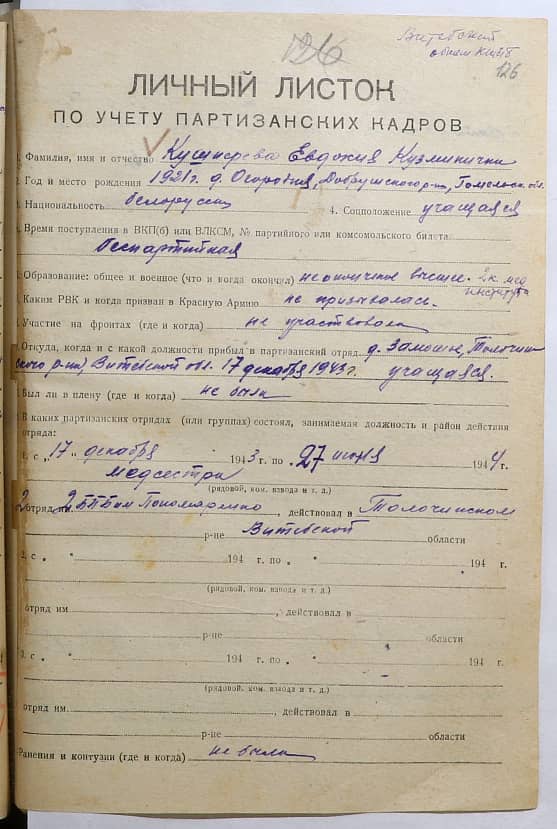 126
Витебский
обком КП(б)Б
126
ЛИЧНЫЙ ЛИСТОК
ПО УЧЕТУ ПАРТИЗАНСКИХ КАДРОВ
1. Фамилия, имя и отчество Кушнерева Евдокия Кузминична
2. Год и место рождения 1921 г. д. Огородня, Добрушского р-на, Гомельск. обл.
3. Национальность белоруска 4. Соцположение учащаяся
5. Время поступления в ВКП(б) или ВЛКСМ, № партийного или комсомольского билета
беспартийная
Образование: общее и военное (что и когда окончил) неоконченое высшее. 2 к. мед
института
Каким РВК и когда призван в Красную Армию не призывалась.
Участие на фронтах (где и когда) не участвовала
Откуда, когда и с какой должности прибыл в партизанский отряд д. Замошье, Толочин
ского р-на, Витебской обл. 17 декабря 1943 г. учащаяся.
Был ли в плену (где и когда) не была
В каких партизанских отрядах (или группах) состоял, занимаемая должность и район действия
отряда:
1. с „17„ декабря 1943 г. по „27 июня 1944 г.
медсестра
(рядовой, ком. взвода и т. д.)
отряд им. Пономаренко, действовал в Толочинском
р-не Витебской области
2. с „ " 194 г. по „ " 194 г.
(рядовой, ком. взвода и т. д.)
отряд им, действовал в
р-не области
3. с „ " 194 г. по „ " 194 г.
(рядовой, ком. взвода и т. д.)
отряд им., действовал в
р-не области
Ранения и контузии (где и когда) не была